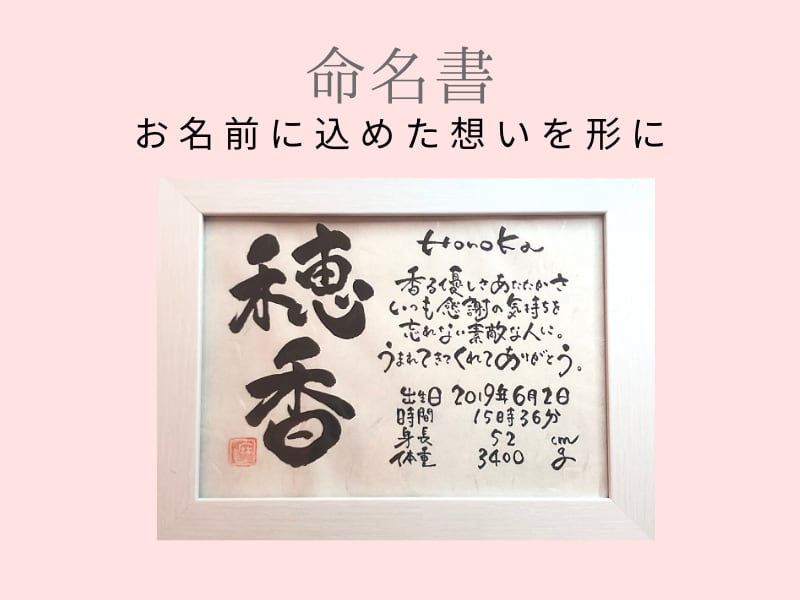 命名書
お名前に込めた想いを形に
穂香
Honoka
香る優しさあたたかさ
いつも感謝の気持ちを
忘れない素敵な人に。
うまれてきてくれてありがとう。
出生日 2019年6月2日
時間 15時36分
身長 52 cm
体重 3400 g